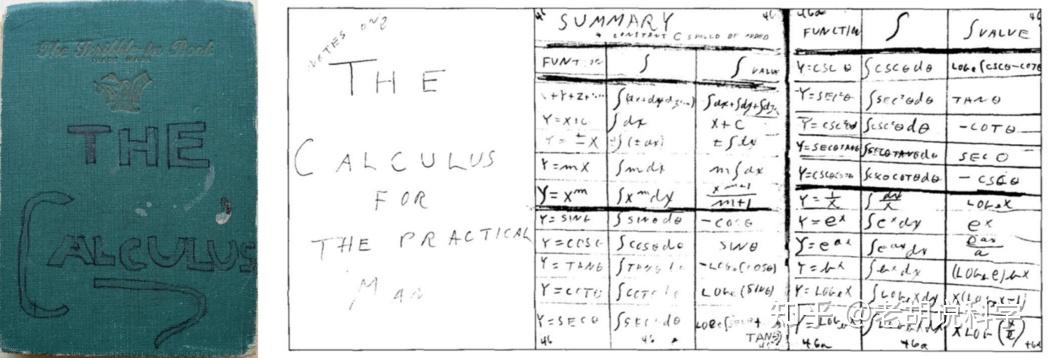 The Scribble-in Book
TRADE MARK
THE
CALCULUS
NOTES ON
THE
CALCULUS
FOR
THE PRACTICAL
MAN
46 SUMMARY 46
+ CONSTANT C SHOULD BE ADDED
FUNCTION ∫ ∫ VALUE
∫dx+∫dy+∫dz
Y=X+C ∫dx X+C
Y=±X ±∫dx
Y=mX ∫mdx m∫dx
Y=Xᵐ ∫xᵐdx xᵐ⁺¹/m+1
Y=SINθ ∫SINθdθ -COSθ
Y=COSθ ∫COSθdθ SINθ
Y=TANθ -LOGₑ(COSθ)
Y=COTθ LOGₑ(SINθ)
Y=SECθ ∫SECθdθ
TANθ)
46 46
46a 46
FUNCTION ∫ ∫VALUE
Y=CSCθ ∫CSCθdθ LOGₑ(CSCθ-COTθ
Y=SEC²θ ∫SEC²θdθ TANθ
Y=CSC²θ ∫CSC²θdθ -COTθ
Y=SECθTANθ ∫SECθTANθdθ SECθ
Y=CSCθCOTθ ∫CSCθCOTθdθ -CSCθ
Y=1/X ∫dx/x LOGₑX
Y=eˣ ∫eˣdx eˣ
Y=eᵃˣ ∫eᵃˣdx eᵃˣ/a
Y=bˣ ∫bˣdx (LOGbe)bˣ
Y=LOGₑX ∫LOGₑXdx X(LOGₑX-1)
46a 46a
知乎 @老胡说科学